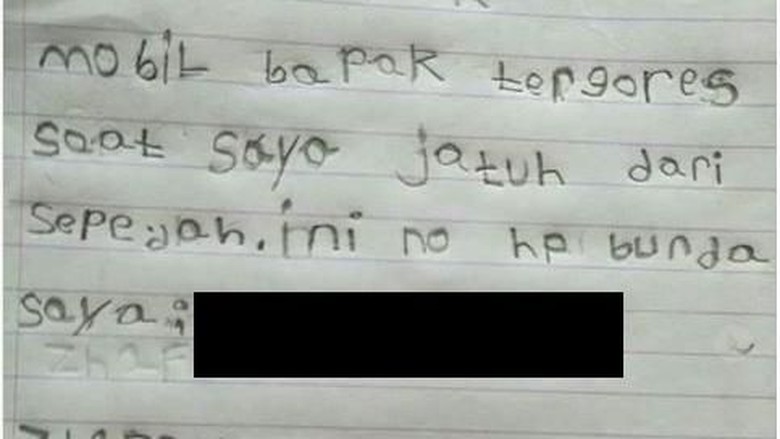 mobil bapak tergores
saat saya jatuh dari
sepedah. ini no hp bunda
saya: